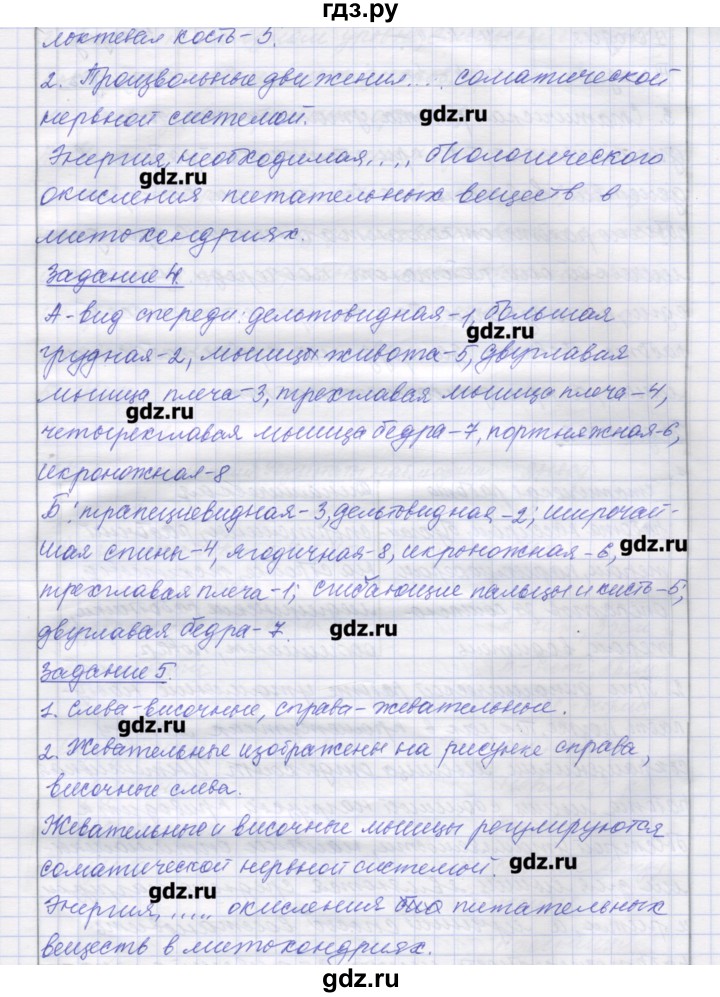 гдз.ру
локтевая кость-5.
2. Произвольные движения... соматической
нервной системой. gdz.ru
Энергия, необходимая.... биологического
gdz.ru
окисления питательных веществ в
митохондриях.
Задание 4.
А-вид спереди: дельтовидная-1, большая
gdz.ru
грудная-2, мышцы живота-5, двуглавая
мышца плеча-3, трехглавая мышца плеча-4,
gdz.ru
четырехглавая мышца бедра-7, портняжная-6,
икроножная-8
Б: трапециевидная-3, дельтовидная-2; широчай-
шая спины-4, ягодичная-8, икроножная-6, gdz.ru
трехглавая плеча-1; сгибающие пальцы и кисть-5,
двуглавая бедра-7 gdz.ru
Задание 5.
1. Слева-височные, справа-жевательные.
gdz.ru
2. Жевательные изображены на рисунке справа,
височные слева.
Жевательные и височные мышцы регулируются
соматической нервной системой. gdz.ru
gdz.ru
Энергия,..... окисления био питательных
веществ в митохондриях.
gdz.ru